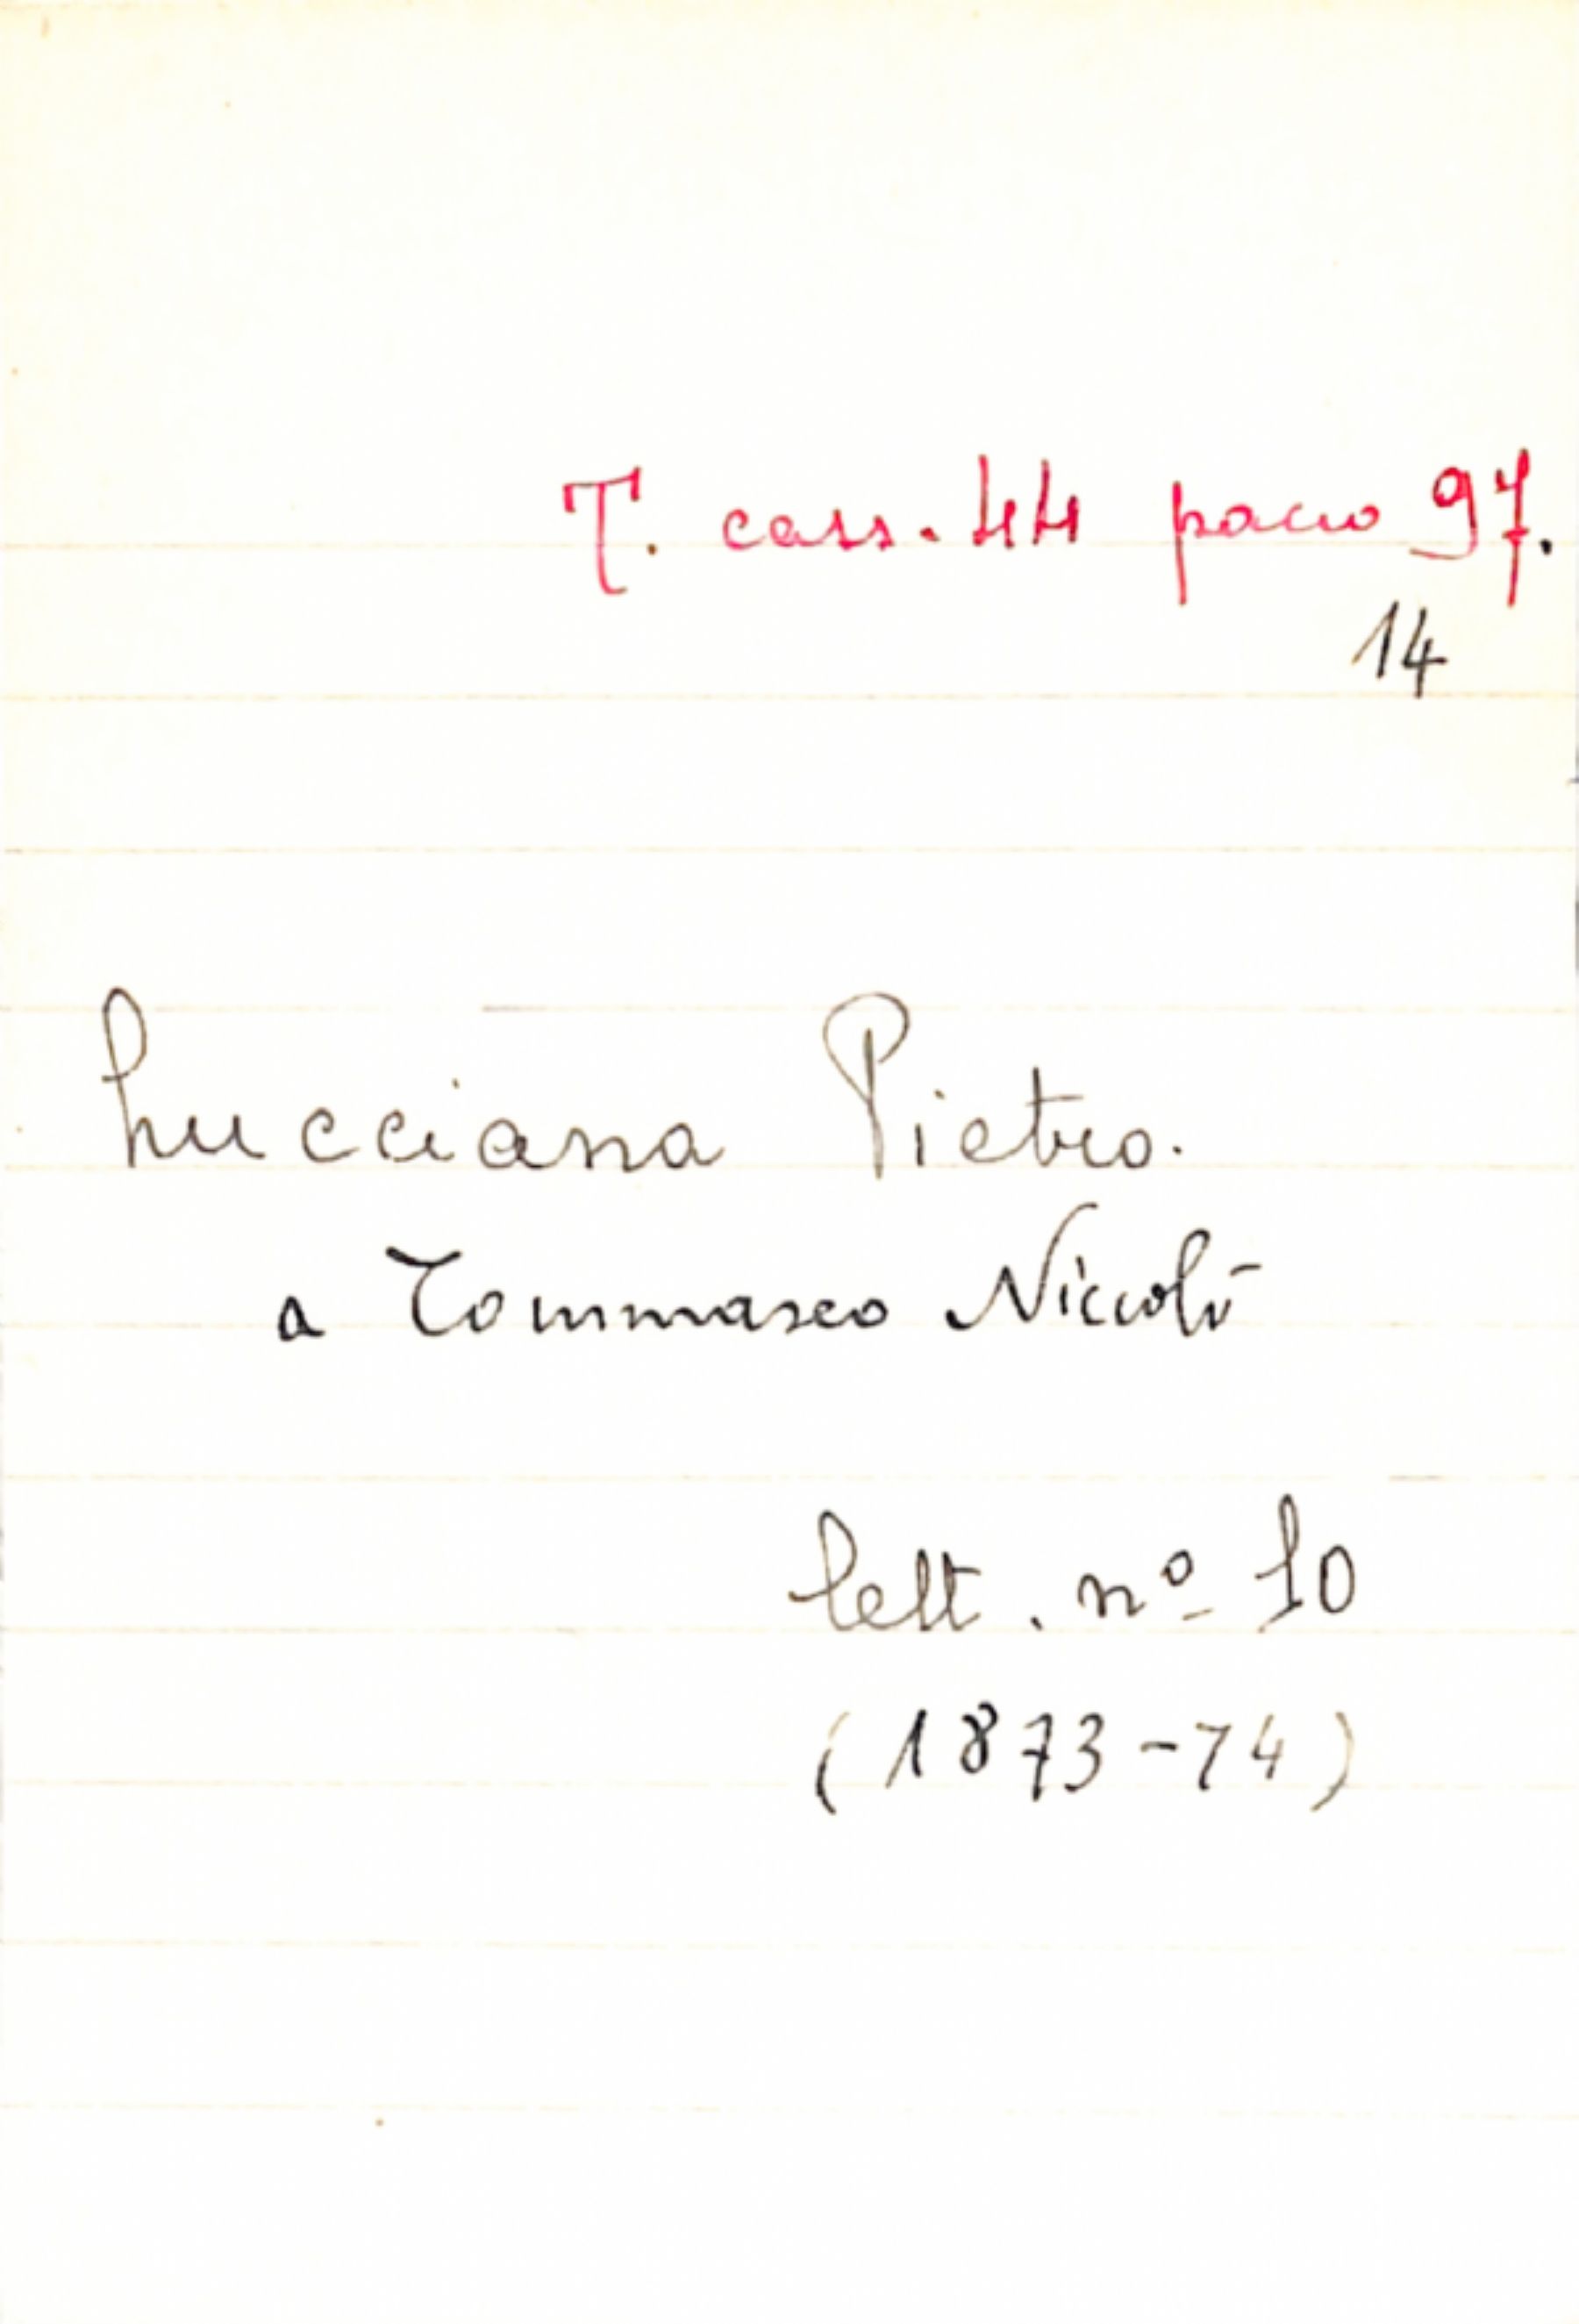 T. cass. 44 pacco 97.
14
Lucciana Pietro.
a Tommaseo Niccolò
lett. nº 10
(1873-74)